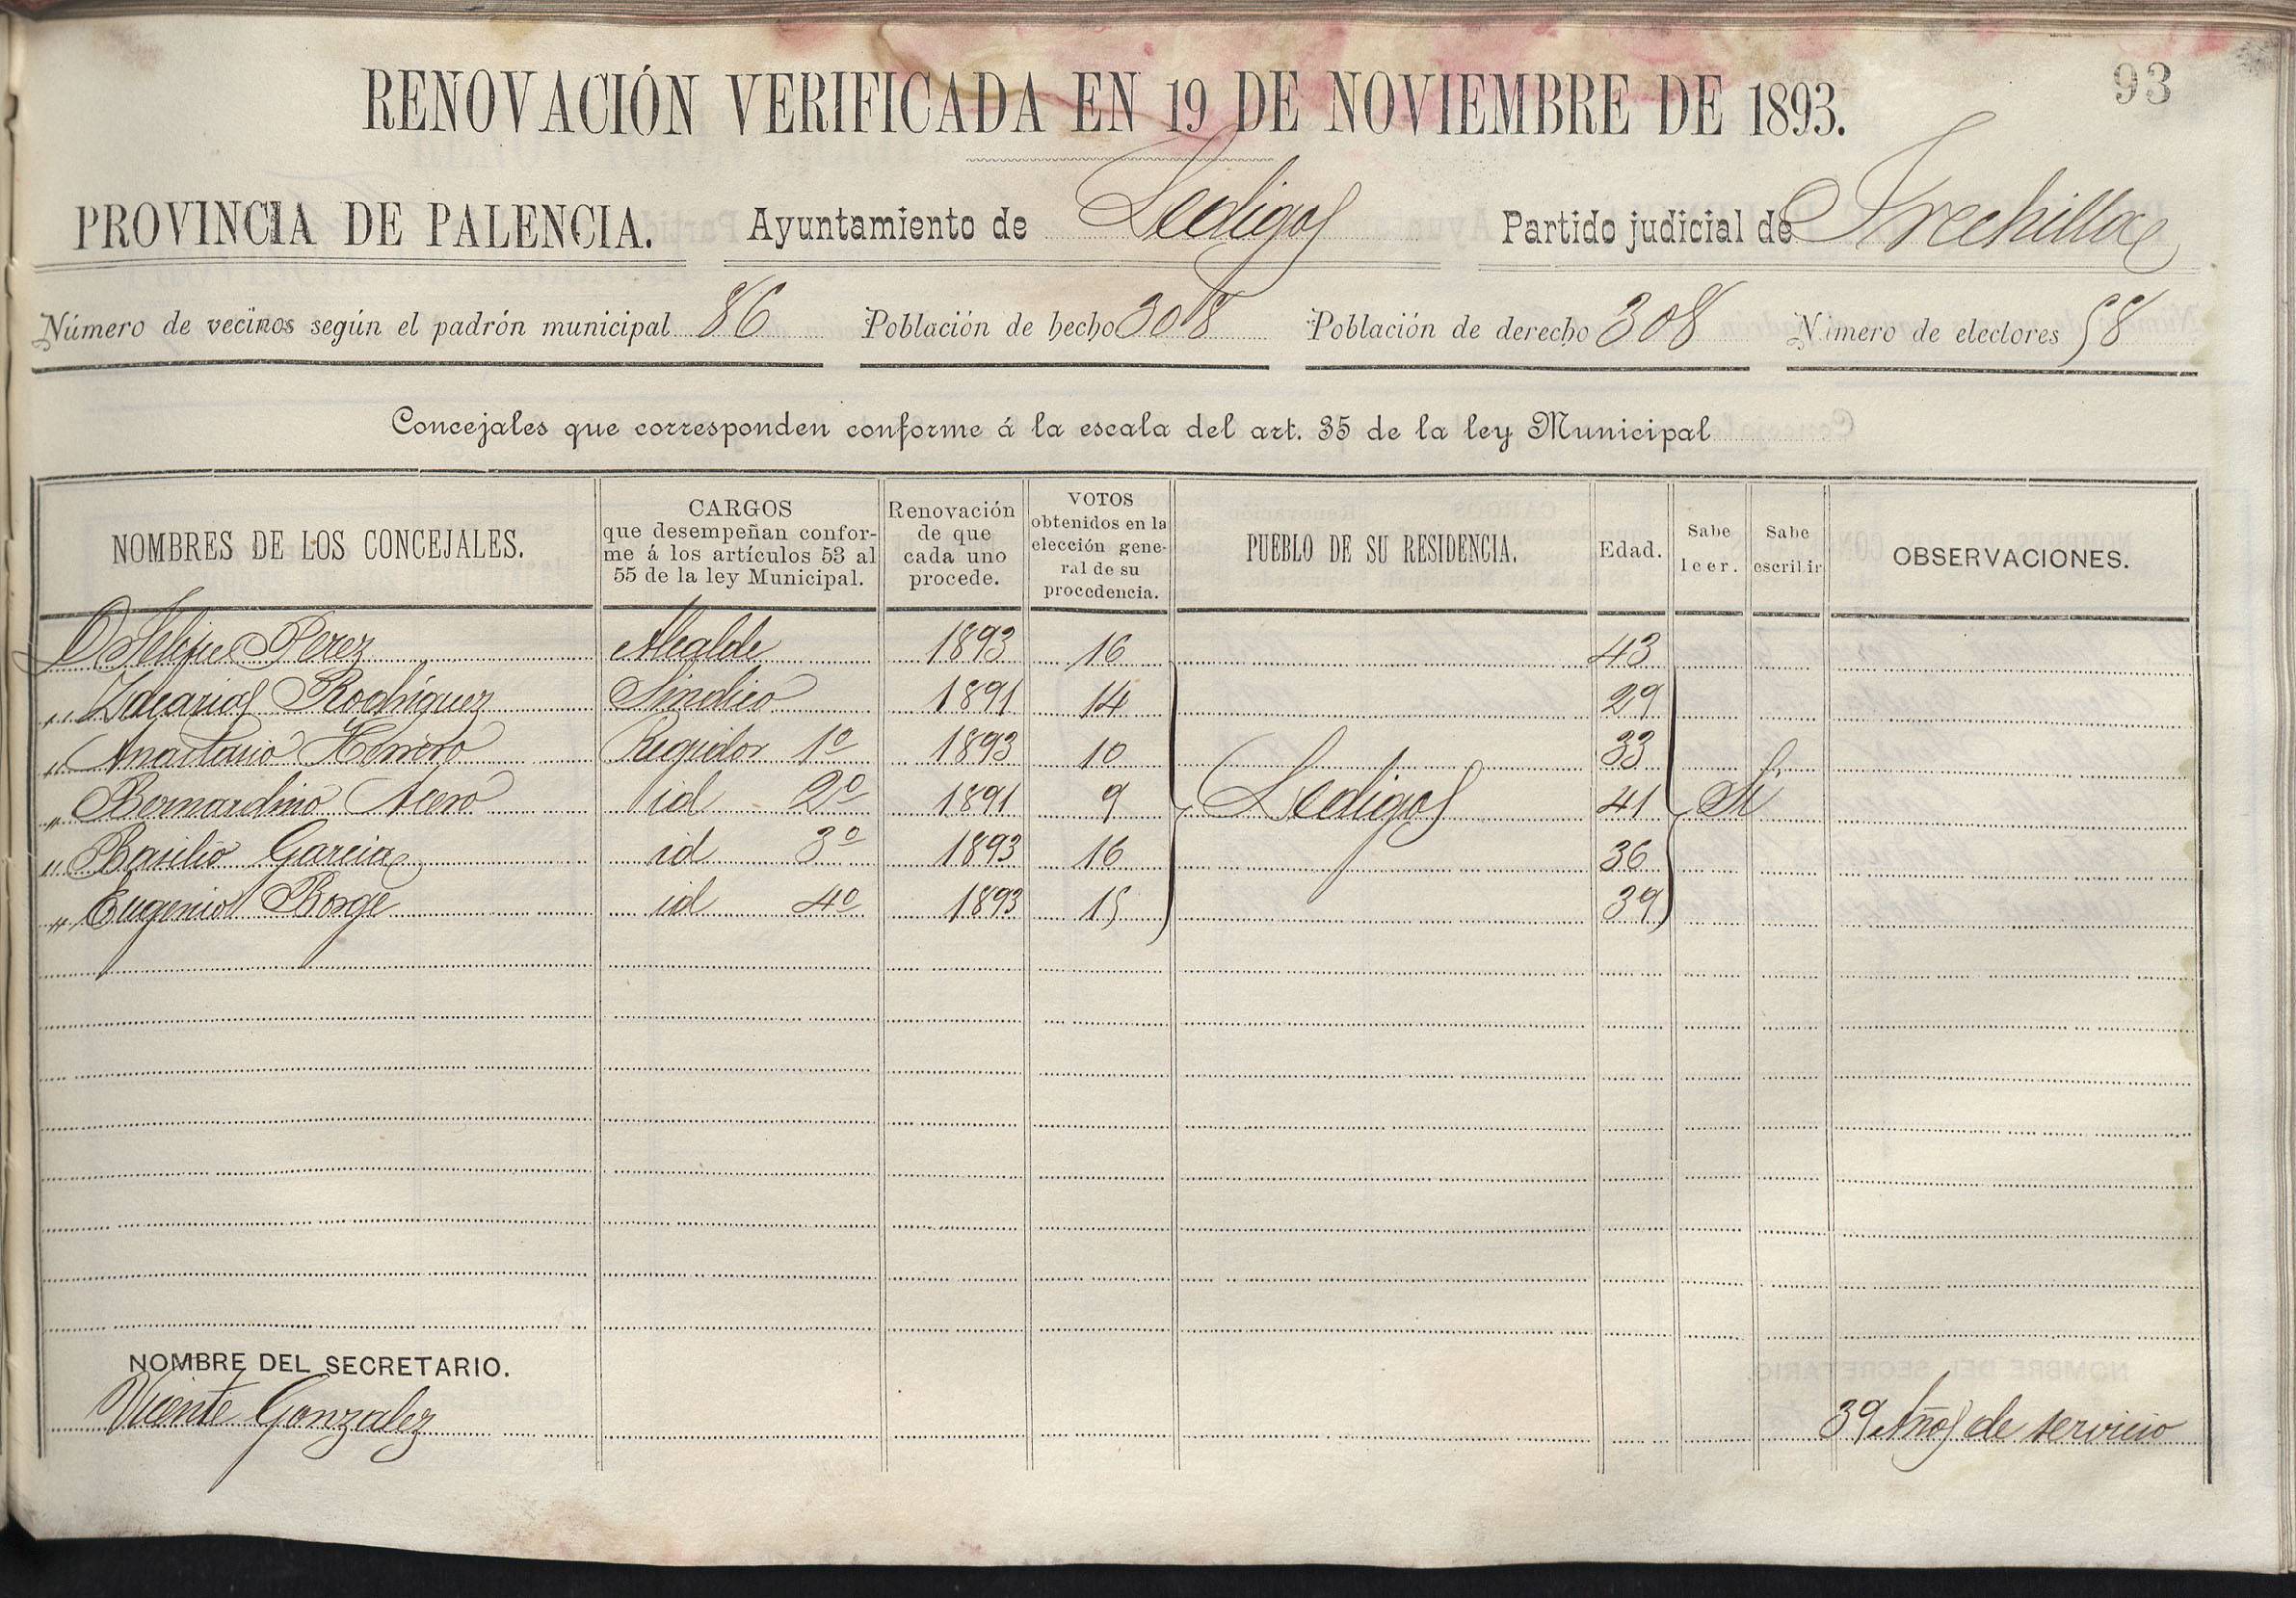 93
RENOVACIÓN VERIFICADA EN 19 DE NOVIEMBRE DE 1893.
PROVINCIA DE PALENCIA. Ayuntamiento de Ledigos Partido judicial de Frechilla
Número de vecinos según el padrón municipal 86 Población de hecho 308 Población de derecho 308 Número de electores 58
Concejales que corresponden conforme á la escala del art. 35 de la ley Municipal
NOMBRES DE LOS CONCEJALES. CARGOS que desempeñan conforme á los artículos 53 al 55 de la ley Municipal. Renovación de que cada uno procede. VOTOS obtenidos en la elección general de su procedencia. PUEBLO DE SU RESIDENCIA. Edad. Sabe leer. Sabe escribir OBSERVACIONES.
D Felipe Perez Alcalde 1893 16 43
" Zacarias Rodríguez Sindico 1891 14 29
" Anastasio Herrero Regidor 1º 1893 10 33
" Bernardino Acero id 2º 1891 9 Ledigos 41 Si
" Basilio Garcia id 3º 1893 16 36
" Eugenio Borge id 4º 1893 15 39
NOMBRE DEL SECRETARIO.
Vicente Gonzalez 39 Años de servicio